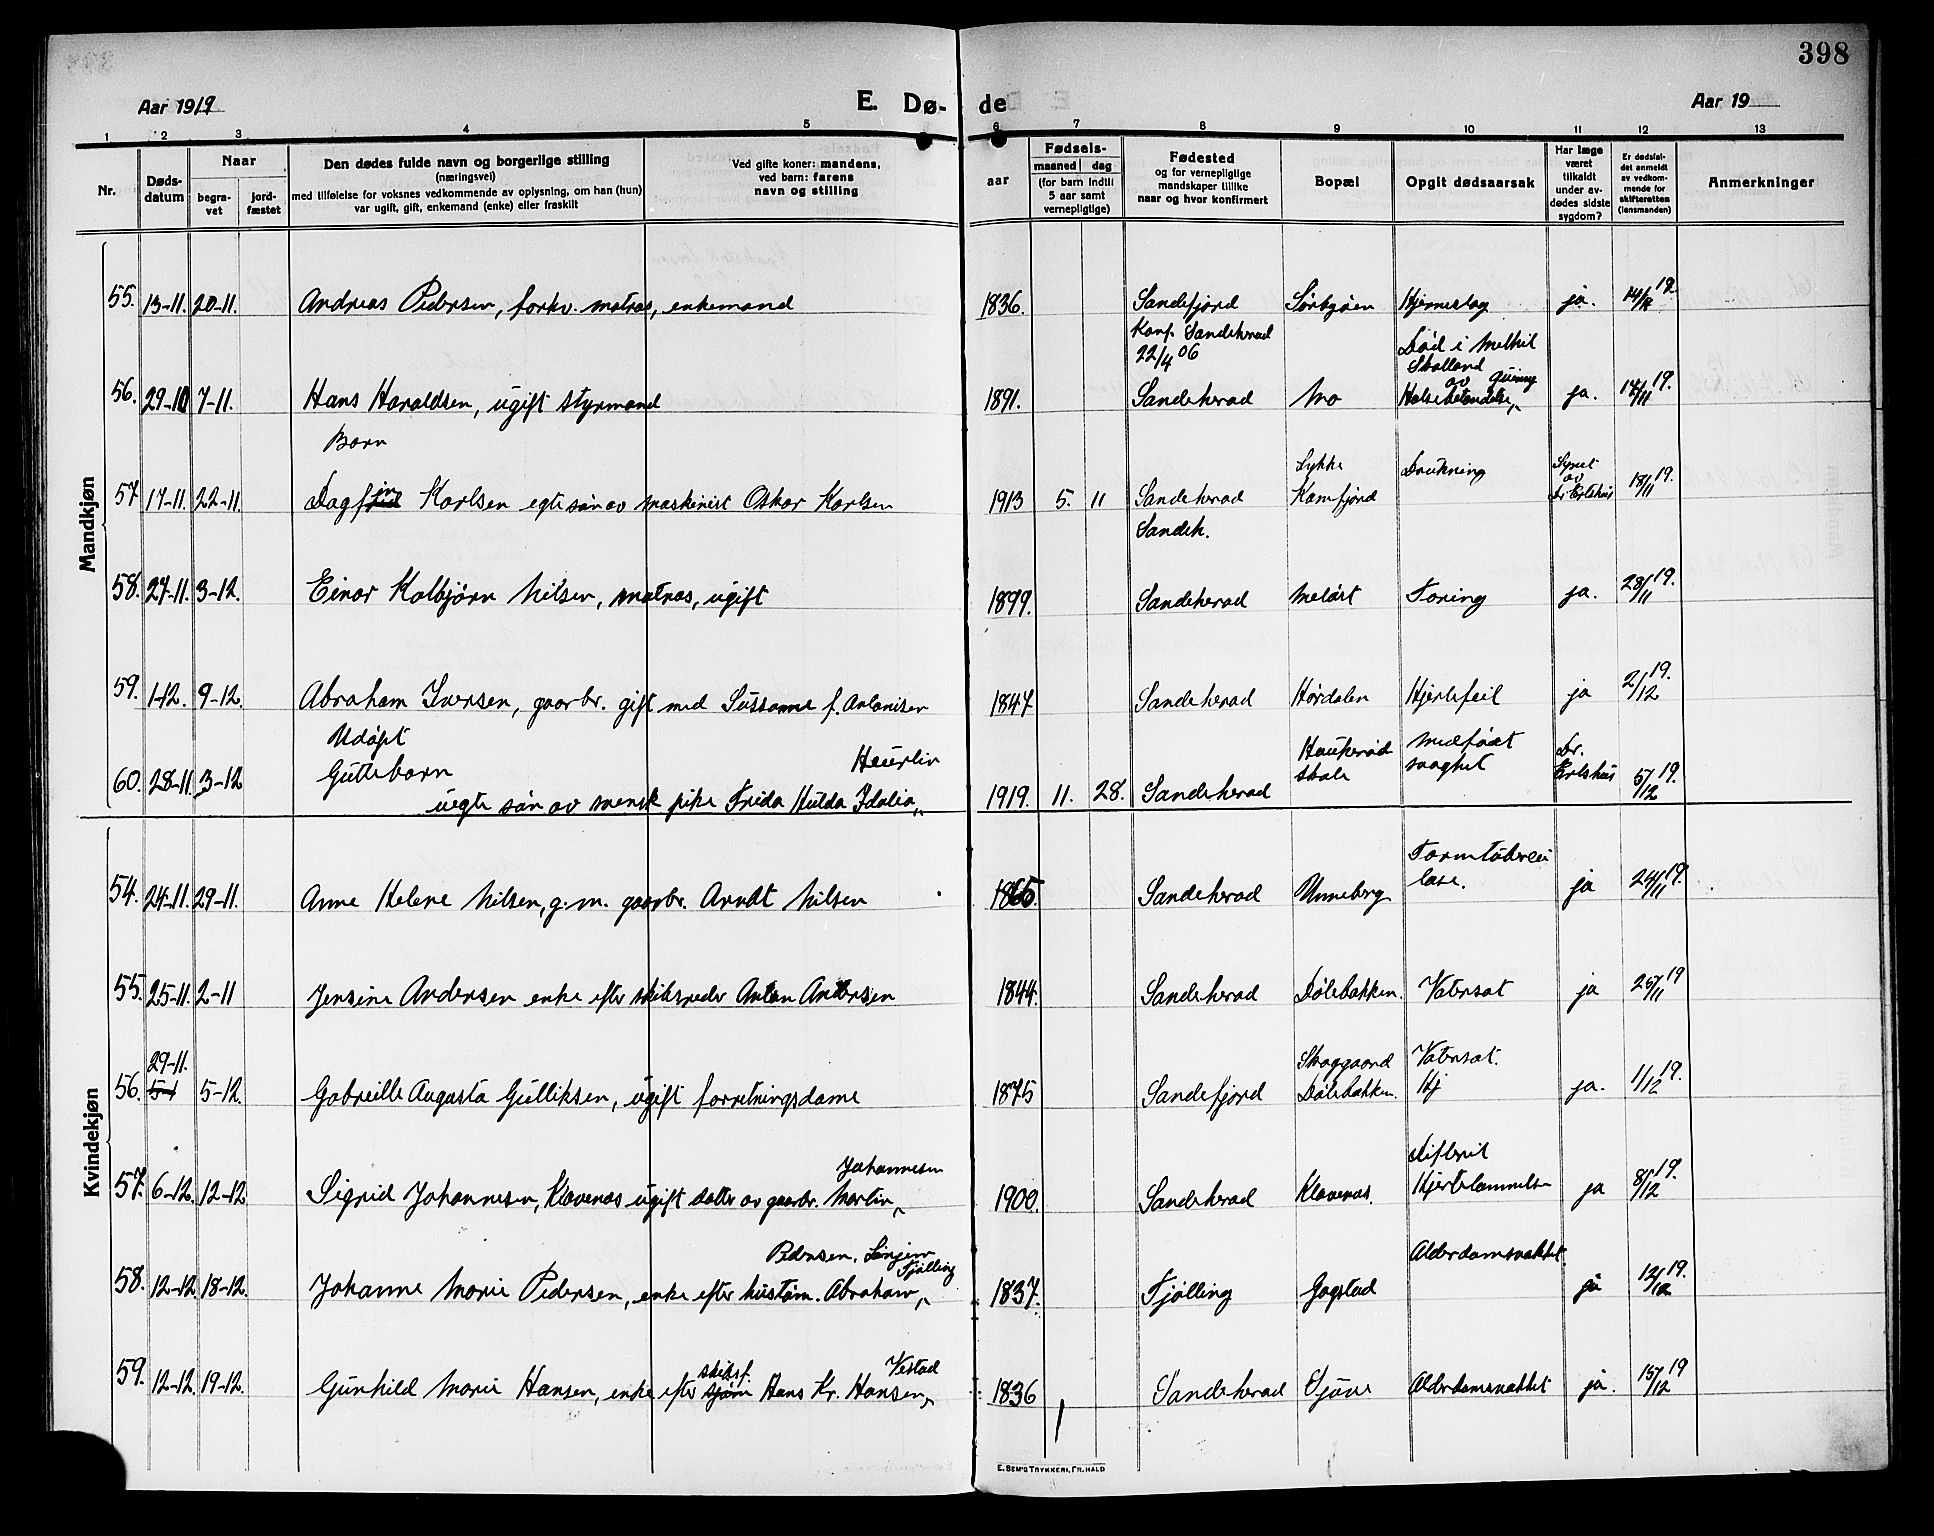 398
Aar 1919
E. Dø-
de
Aar 19
1 2 3 4 5 6 7 8 9 10 11 12 13
Nr.
Døds-
datum
Naar
begra-
vet
jord-
fæstet
Den dødes fulde navn og borgerlige stilling
(næringsvei)
med tilføielse for voksnes vedkommende av oplysning, om han (hun)
var ugift, gift, enkemand (enke) eller fraskilt
Ved gifte koner: mandens,
ved barn: farens
navn og stilling
aar
Fødsels-
maaned dag
(for barn indtil
5 aar samt
vernepligtige)
Fødested
og for vernepligtige
mandskaper tillike
naar og hvor konfirmert
Bopæl
Opgit dødsaarsak
Har læge
været
tilkaldt
under av-
dødes sidste
sygdom?
Er dødsfal-
det anmeldt
av vedkom-
mende for
skifteretten
(lensmanden)
Anmerkninger
Mandkjøn
55. 13-11. 20-11. Andreas Pedersen, forhv. matros, enkemand 1836. Sandefjord Sørbyøen Hjerneslag ja. 19.
Konf. Sandeherad
22/4 06
Død i Methil
Skotland
av
56. 29-10 7-11. Hans Haraldsen, ugift styrmand 1891. Sandeherad Mo Halsebetændelse ja. 14/11 19.
Barn
57. 17-11. 22-11. Dagfin Karlsen egte søn av maskinist Oskar Karlsen 1913 5. 11 Sandeherad Lykke Kamfjord Drukning Synet av Dr. Erlshus 18/11 19.
Sandeh.
58. 27-11. 3-12. Einar Kolbjørn Nilsen, matros, ugift 1899. Sandeherad Meløst Tæring ja. 28/11 19.
59. 1-12. 9-12. Abraham Iversen, gaarbr. gift med Sussanne f. Antonisen 1847 Sandeherad Hørdalen Hjertefeil ja 2/12 19.
Udøpt
60. 28-11. 3-12 Guttebarn Heurlin
uegte søn av svensk pike Frida Hulda Idalia 1919. 11. 28. Sandeherad Haukerød skole Medfødt svaghet Dr. Erlshus 5/12 19.
Kvindekjøn
54. 24-11. 29-11. Anne Helene Nilsen, g.m. gaarbr. Arndt Nilsen 1865. Sandeherad Unneberg Tarmtuberculose. ja 24/11 19.
55. 25-11. 2-11 Jensine Andersen enke efter skibsreder Anton Andersen 1844. Sandeherad Dølebakken. Vatersot ja 26/11 19
56. 29-11. 5-12. Gabreille Augusta Gulliksen, ugift forretningsdame 1875 Sandefjord Skaggaard Dølebakken. Vatersot. Hj ja. 1/12 19.
57. 6-12. 12-12. Sigrid Johannesen, Klavenæs ugift datter av gaarbr. Martin Johannesen 1900. Sandeherad Klavenæs. Difterit Hjertelammelse ja 8/12 19.
Pedersen,
Tjølling
58. 12-12. 18-12. Johanne Marie Pedersen, enke efter husløm. Abraham 1837. Tjølling Gogstad Alderdomsvakhet. ja 12/12 19.
59. 12-12. 19-12. Gunhild Marie Hansen, enke efter skibsf. Hans Kr. Hansen, Vestad 1836 Sandeherad Sjøve Alderdomsvakhet ja. 15/12 19
E. SEM'S TRYKKERI, FR. HALD